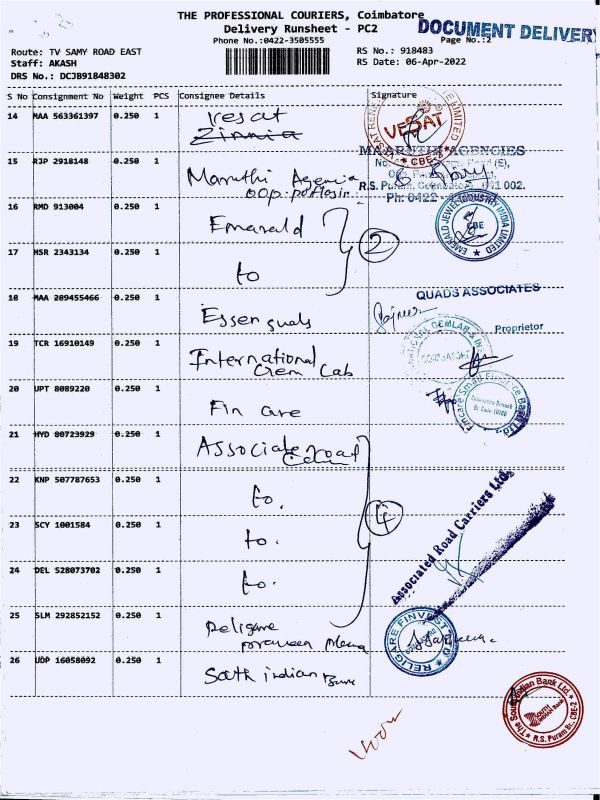 THE PROFESSIONAL COURIERS, Coimbatore
Delivery Runsheet - PC2
DOCUMENT DELIVERY
Phone No.:0422-3505555
Page No.:2
Route: TV SAMY ROAD EAST
Staff: AKASH
DRS No.: DCJB91848302
RS No.: 918483
RS Date: 06-Apr-2022
S No Consignment No Weight PCS Consignee Details Signature
14 MAA 563361397 0.250 1 Zinnia
VESAT
CBE-2
15 RJP 2918148 0.250 1 Maruthi Agencia
MAARUTHI AGENCIES
R.S. Puram, Coimbatore - 641 002.
Ph: 0422
16 RMD 913004 0.250 1 Emerald 2
EMERALD JEWEL INDUSTRY INDIA LIMITED
CBE
17 MSR 2343134 0.250 1 to
18 MAA 209455466 0.250 1 Essen quads
QUADS ASSOCIATES
Proprietor
19 TCR 16910149 0.250 1 International
Gem Lab
20 UPT 8089220 0.250 1 Fin care
Fincare Small Finance Bank Ltd.
Coimbatore Branch
21 HYD 80723929 0.250 1 Associate road
22 KNP 507787653 0.250 1 to.
4
23 SCY 1001584 0.250 1 to.
24 DEL 528073702 0.250 1 to.
Associated Road Carriers Ltd.
25 SLM 292852152 0.250 1 Religare
praveen Mena
RELIGARE FINVEST
26 UDP 16058092 0.250 1 South indian Bank
The South Indian Bank Ltd.
SOUTH INDIAN Bank
R.S. Puram Br., CBE-2